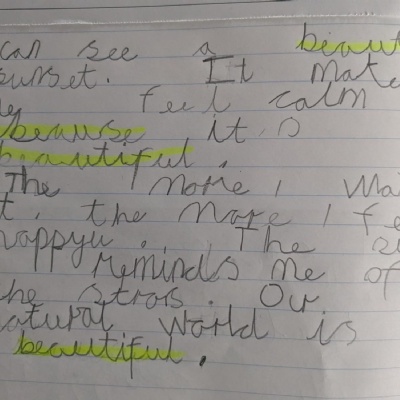 can see a beaut
sunset. It make
feel calm
beause it is
beautiful.
The more I wa
t, the more I fe
happyu. The su
reminds me of
he stros. Our
atural world is
beautiful.